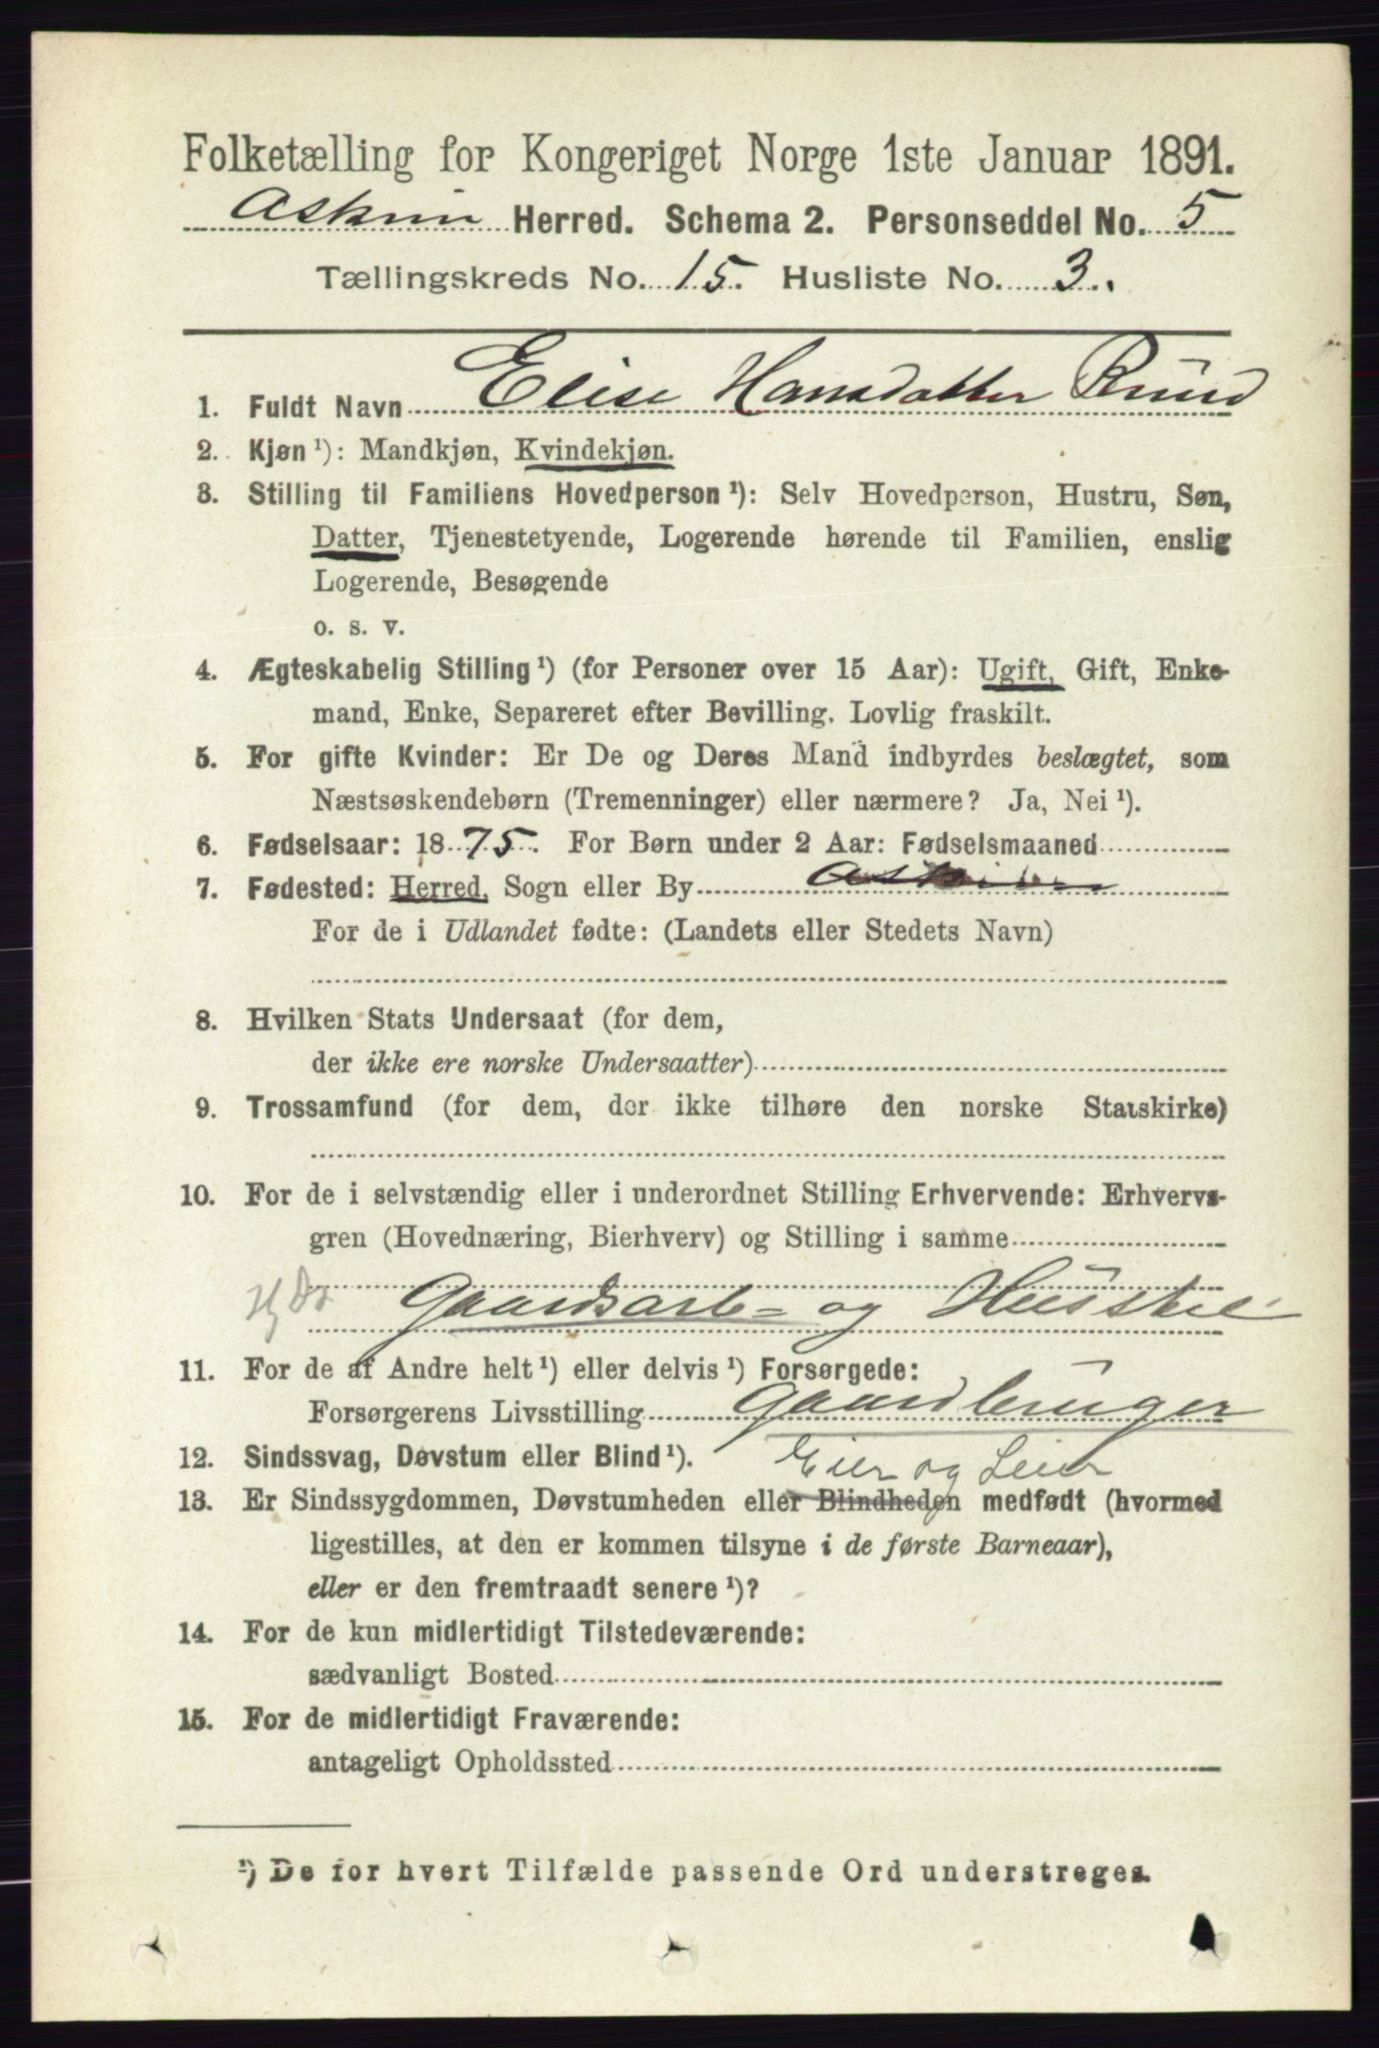 Folketælling for Kongeriget Norge 1ste Januar 1891.
Askim Herred. Schema 2. Personseddel No. 5
Tællingskreds No. 15. Husliste No. 3.
1. Fuldt Navn Elise Hansdatter Ruud
2. Kjøn ¹): Mandkjøn, Kvindekjøn.
3. Stilling til Familiens Hovedperson ¹): Selv Hovedperson, Hustru, Søn,
Datter, Tjenestetyende, Logerende hørende til Familien, enslig
Logerende, Besøgende
o. s. v.
4. Ægteskabelig Stilling ¹) (for Personer over 15 Aar): Ugift, Gift, Enke-
mand, Enke, Separeret efter Bevilling. Lovlig fraskilt.
5. For gifte Kvinder: Er De og Deres Mand indbyrdes beslægtet, som
Næstsøskendebørn (Tremenninger) eller nærmere? Ja, Nei ¹).
6. Fødselsaar: 1875. For Børn under 2 Aar: Fødselsmaaned
7. Fødested: Herred, Sogn eller By Askim
For de i Udlandet fødte: (Landets eller Stedets Navn)
8. Hvilken Stats Undersaat (for dem,
der ikke ere norske Undersaatter)
9. Trossamfund (for dem, der ikke tilhøre den norske Statskirke)
10. For de i selvstændig eller i underordnet Stilling Erhvervende: Erhvervs-
gren (Hovednæring, Bierhverv) og Stilling i samme
Gaardsarb- og Husstel
11. For de af Andre helt ¹) eller delvis ¹) Forsørgede:
Forsørgerens Livsstilling Gaardbruger
12. Sindssvag, Døvstum eller Blind ¹). Eier og Leier
13. Er Sindssygdommen, Døvstumheden eller Blindheden medfødt (hvormed
ligestilles, at den er kommen tilsyne i de første Barneaar),
eller er den fremtraadt senere ¹)?
14. For de kun midlertidigt Tilstedeværende:
sædvanligt Bosted
15. For de midlertidigt Fraværende:
antageligt Opholdssted
¹) De for hvert Tilfælde passende Ord understreges.